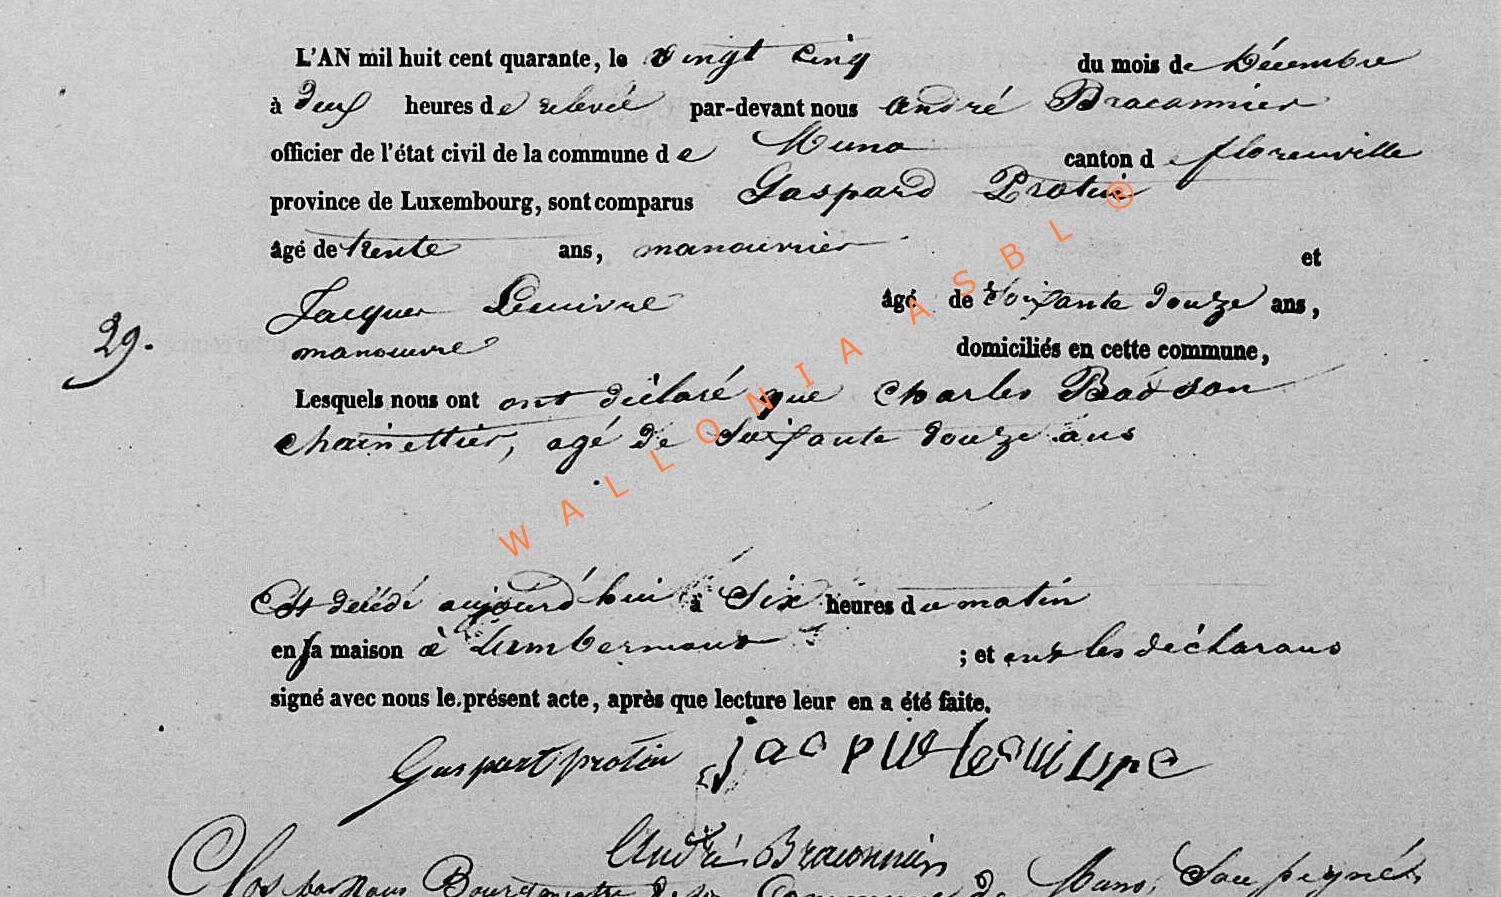 L'AN mil huit cent quarante, le vingt cinq du mois de Décembre
à deux heures de relevée par-devant nous André Braconnier
officier de l'état civil de la commune de Muno canton de florenville
province de Luxembourg, sont comparus Gaspard Protin
âgé de trente ans, manouvrier et
Jacques Lecuivre âgé de soixante douze ans,
29. manoeuvre domiciliés en cette commune,
Lesquels nous ont ont déclaré que Charles Bodson
chainettier, agé de Soixante douze ans
Est décédé aujourd'hui à Six heures du matin
en sa maison à Lambermont ; et ont les déclarans
signé avec nous le présent acte, après que lecture leur en a été faite.
Gaspart protin jacque lecuivre
André Braconnier
Clos par nous Bourgmestre de la Commune de Muno, Soussigné
WALLONIA ASBL ©